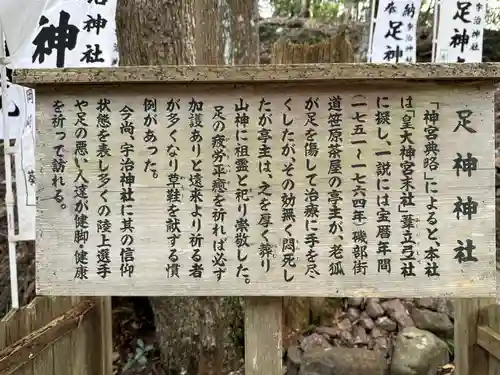 足神神社
「神宮典略」によると、本社
は「皇大神宮末社葦立弖社
に探し、一説には宝暦年間
(一七五一〜一七六四)磯部街
道笹原茶屋の亭主が、老狐
が足を傷して治療に手を尽
くしたが、その効無く悶死し
たが亭主は、之を厚く葬り
山神に祖霊と祀り崇敬した。
足の疲労平癒を祈れば必ず
加護ありと遠来より祈る者
が多くなり草鞋を献ずる慣
例があった。
今尚、宇治神社に其の信仰
状態を表し多くの陸上選手
や足の悪い人達が健脚・健康
を祈って訪れる。
神社
足神
納
宇治神社
足神
宇治神社
神